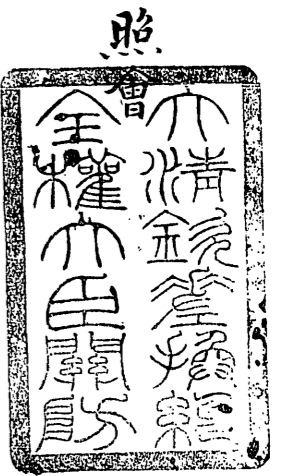 照會
大清欽差換約
全權大臣關防